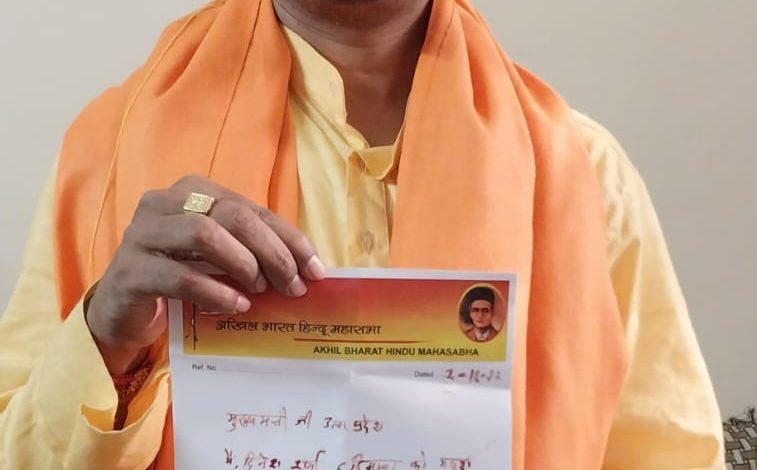 अखिल भारत हिन्दू महासभा
AKHIL BHARAT HINDU MAHASABHA
Ref. No.
Dated 2-12-22
मुख्यमंत्री जी उत्तर प्रदेश
मैं, दिनेश शर्मा 6 दिसम्बर को मथुरा